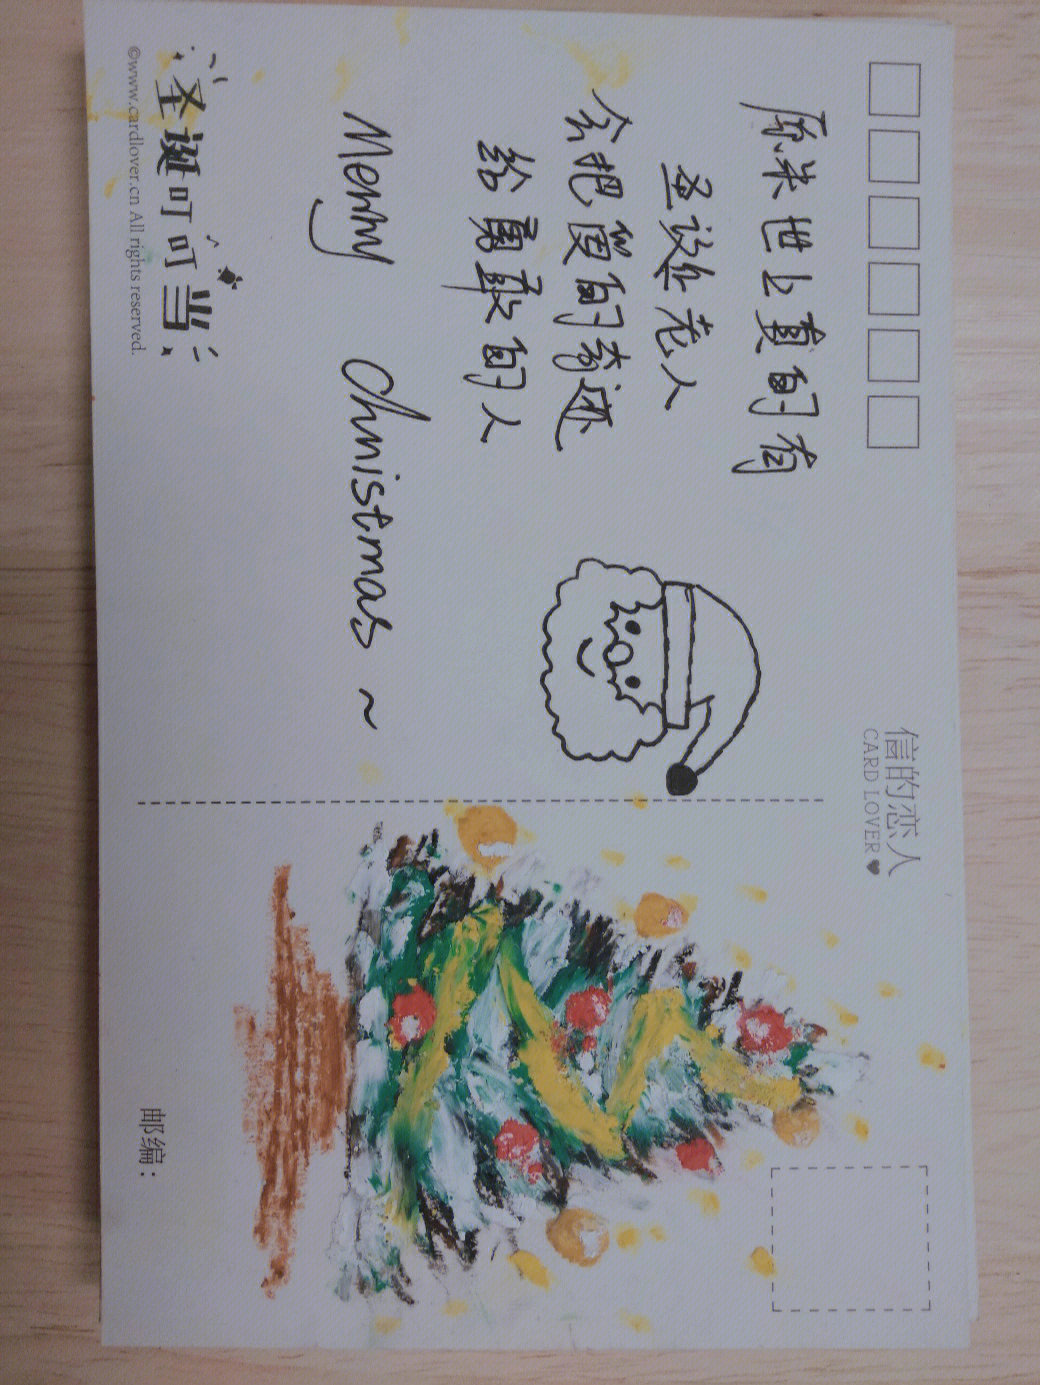 信的恋人
CARD LOVER♥
原来世上真的有
圣诞老人
会把爱的奇迹
给勇敢的人
Merry Christmas ~
圣诞叮叮当
©www.cardlover.cn All rights reserved.
邮编：